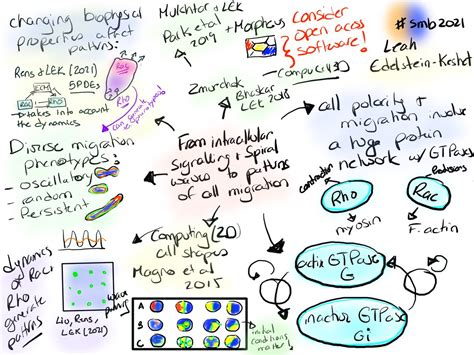 changing biophysical
properties affect
patterns:
Rens & LEK (2021)
5PDEs
Rac
RHO
takes into account
the dynamics
Rac
Rho
can generate
phenotypes!
Mulkhtar & LEK
Park et al
2019
+ Morpheus
Consider
Open access
software!
CompuCell3D
Zmurchok
Bhaskar
LEK 2018
#smb2021
Leah
Edelstein-Keshet
Cell polarity &
migration involve
a huge protein
network w/ GTPases
contraction
Rho
myosin
protrusions
Rac
F. actin
Diverse migration
phenotypes:
- oscillatory
- random
- Persistent
From intracellular
signaling & spiral
waves to patterns
of cell migration
Computing (2D)
cell shapes
Magno et al
2015
dynamics
of Rac &
Rho
generate
patterns
wave
patterns
Liu, Rens,
LEK (2021)
A
B
C
initial
conditions
matter!
active GTPase
G
inactive GTPase
Gi